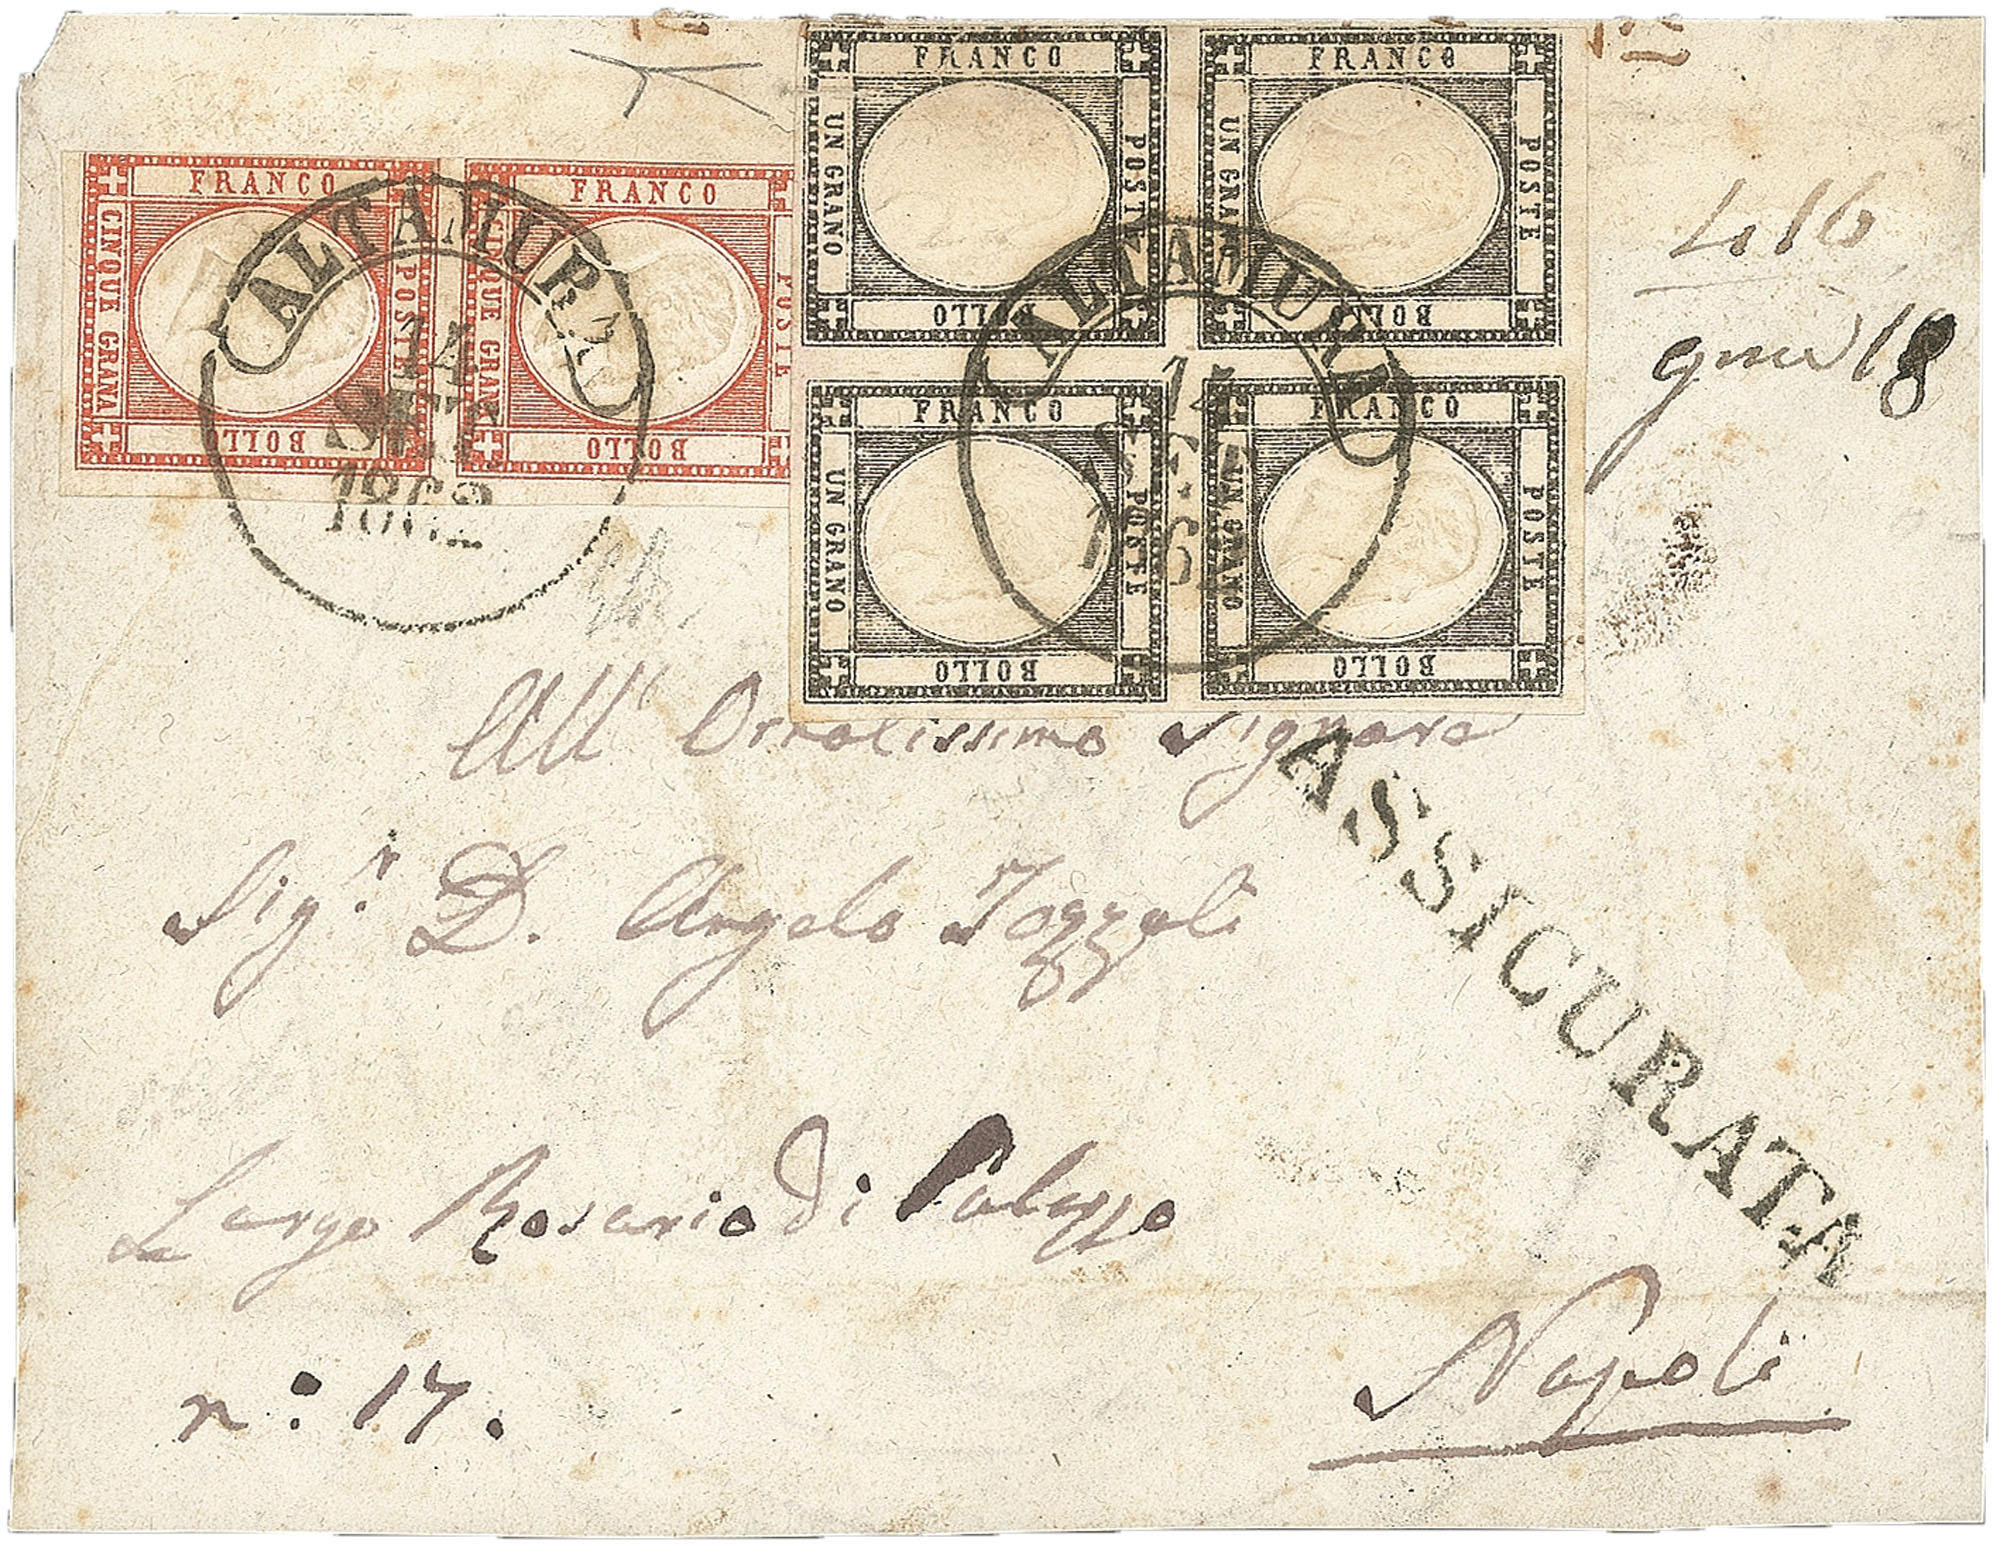 FRANCO
POSTE
BOLLO
CINQUE GRANA
FRANCO
POSTE
BOLLO
CINQUE GRANA
FRANCO
POSTE
BOLLO
UN GRANO
FRANCO
POSTE
BOLLO
UN GRANO
FRANCO
POSTE
BOLLO
UN GRANO
FRANCO
POSTE
BOLLO
UN GRANO
ALTAMURA
14
SET
1862
ALTAMURA
416
18
All' Ornatissimo Signore
Sig.r D. Angelo Tozzoli
ASSICURATA
Largo Rosario di Palazzo
n: 17.
Napoli